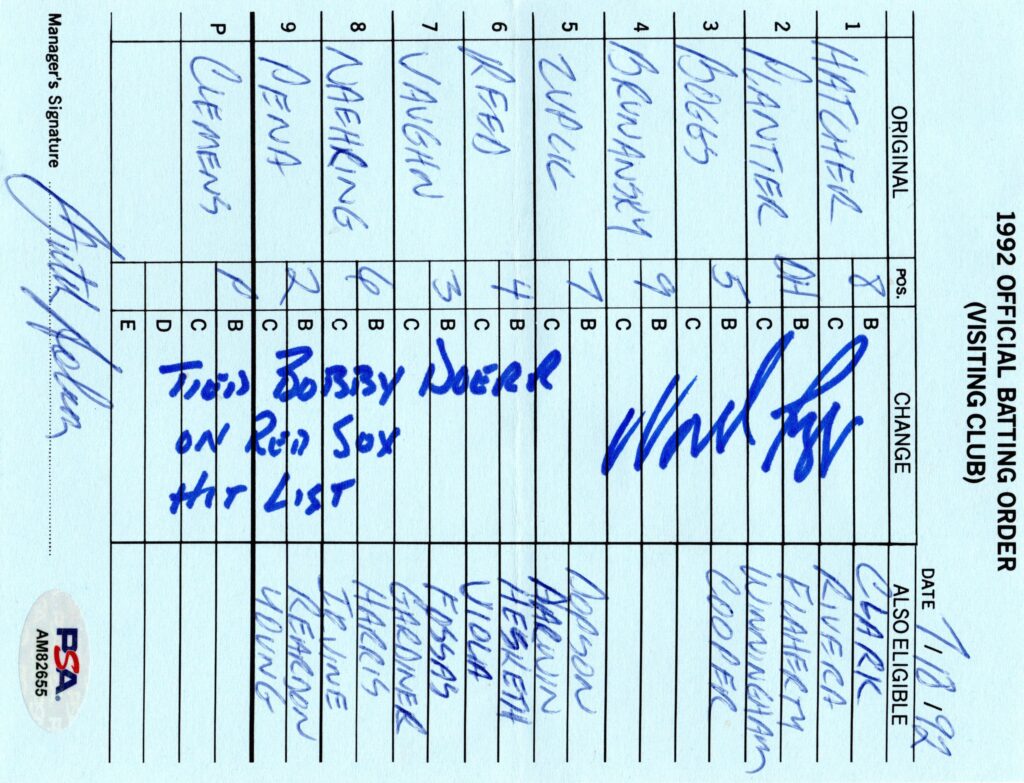 1992 OFFICIAL BATTING ORDER
(VISITING CLUB)
DATE 7/18/92
ORIGINAL POS. CHANGE ALSO ELIGIBLE
1 HATCHER 8 B CLARK
C RIVERA
2 PLANTIER DH B FLAHERTY
C WINNINGHAM
3 BOGGS 5 B COOPER
C
4 BRUNANSKY 9 B
C
5 ZUPCIC 7 B DOPSON
C DARWIN
6 REED 4 B HESKETH
C VIOLA
7 VAUGHN 3 B FOSSAS
C GARDINER
8 NAEHRING 6 B HARRIS
C IRVINE
9 PENA 2 B REARDON
C YOUNG
P CLEMENS P B
C
D
E
Wade Boggs
TIED BOBBY DOERR
ON RED SOX
HIT LIST
Manager's Signature Butch Hobson
PSA.
AM82655